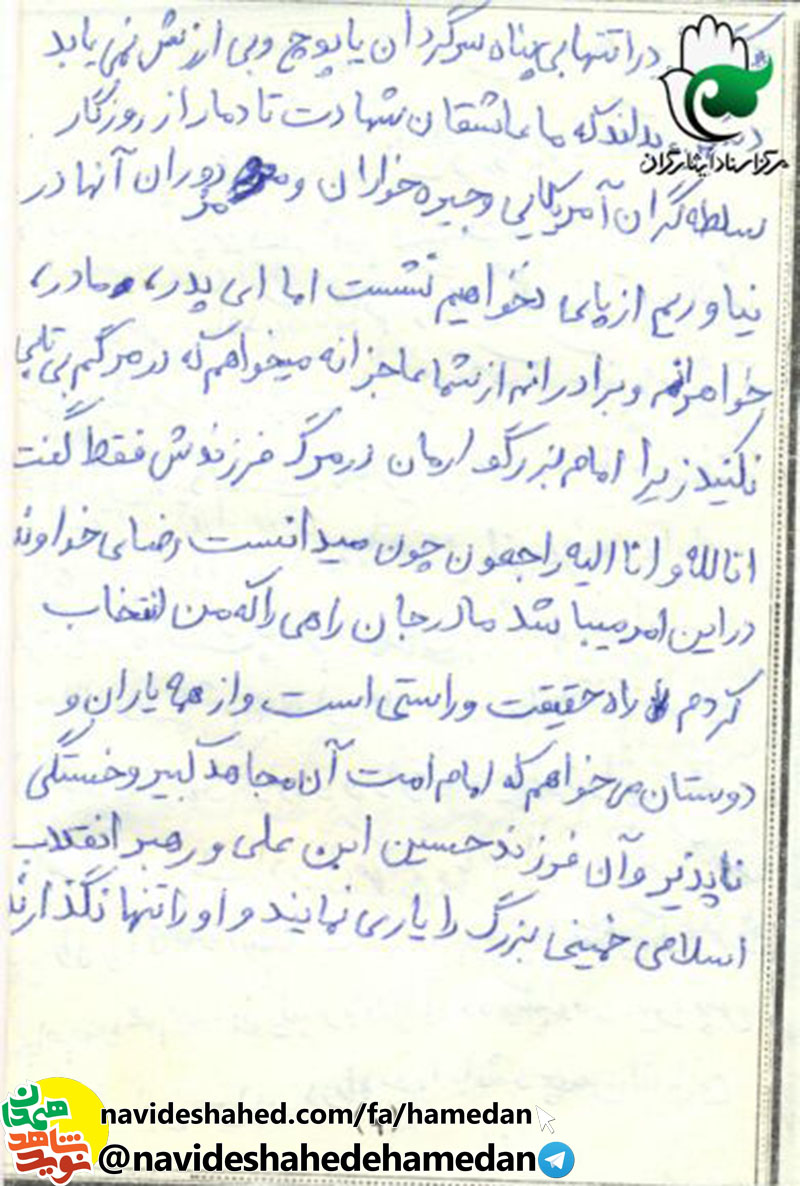 در انتها بی پناه سرگردان یا پوچ و بی ارزش نمی یابد
بدانند که ما عاشقان شهادت تا دمار از روزگار
مرکز اسناد ایثارگران
سلطه گران آمریکایی و جیره خواران و مزدوران آنها در
نیاوریم از پای نخواهیم نشست اما ای پدر، مادر،
خواهرانم و برادرانم از شما عاجزانه میخواهم که در مرگم بی تابی
نکنید زیرا امام بزرگوارمان در مرگ فرزندش فقط گفت
انا لله و انا الیه راجعون چون میدانست رضای خداوند
در این امر میباشد مادر جان راهی را که من انتخاب
کردم راه حقیقت و راستی است و از همه یاران و
دوستان می خواهم که امام امت آن مجاهد کبیر و خستگی
ناپذیر و آن فرزند حسین ابن علی و رهبر انقلاب
اسلامی خمینی بزرگ را یاری نمایند و او را تنها نگذارند
navideshahed.com/fa/hamedan
@navideshahedehamedan
نوید شاهد همدان